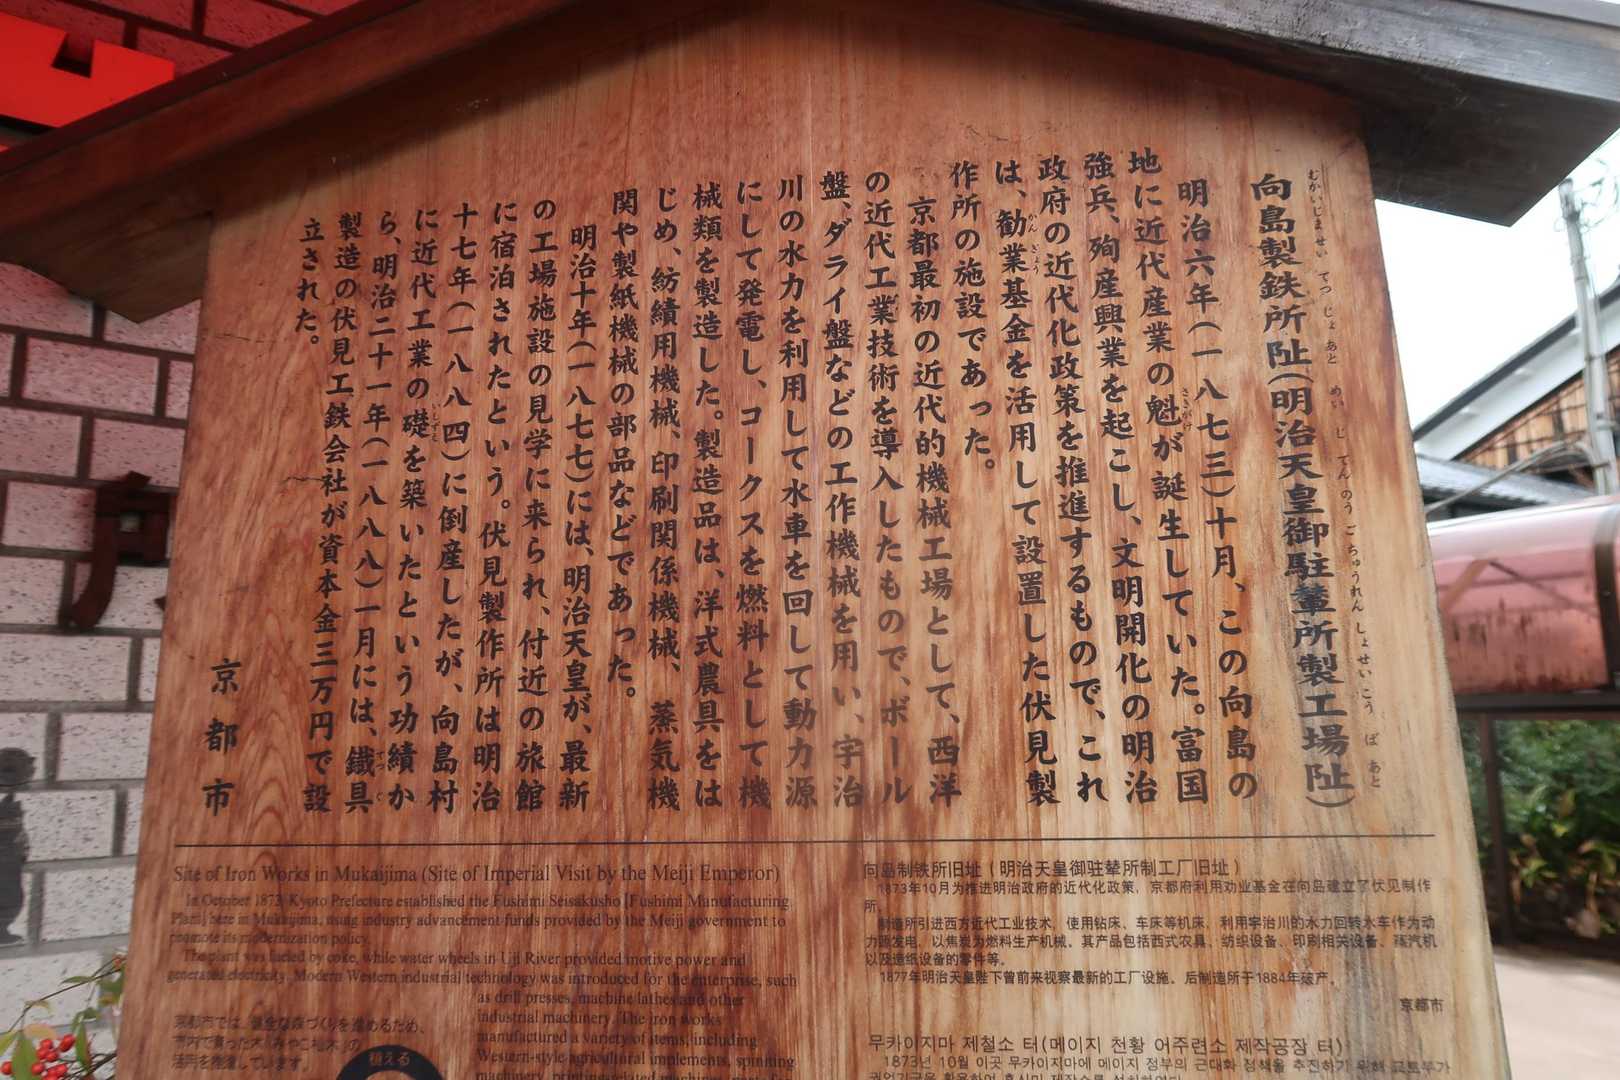 向島製鉄所阯(明治天皇御駐輦所製工場阯)
むかいじませい てつ じょ あと めい じ てん のう ご ちゅうれん しょせいこう ば あと
明治六年(一八七三)十月、この向島の
地に近代産業の魁が誕生していた。富国
さきがけ
強兵、殉産興業を起こし、文明開化の明治
政府の近代化政策を推進するもので、これ
は、勧業基金を活用して設置した伏見製
かん ぎょう
作所の施設であった。
京都最初の近代的機械工場として、西洋
の近代工業技術を導入したもので、ボール
盤、ダライ盤などの工作機械を用い、宇治
川の水力を利用して水車を回して動力源
にして発電し、コークスを燃料として機
械類を製造した。製造品は、洋式農具をは
じめ、紡績用機械、印刷関係機械、蒸気機
関や製紙機械の部品などであった。
明治十年(一八七七)には、明治天皇が、最新
の工場施設の見学に来られ、付近の旅館
に宿泊されたという。伏見製作所は明治
十七年(一八八四)に倒産したが、向島村
に近代工業の礎を築いたという功績か
いしずえ
ら、明治二十一年(一八八八)一月には、鐵具
てつ ぐ
製造の伏見工鉄会社が資本金三万円で設
立された。
京都市
Site of Iron Works in Mukaijima (Site of Imperial Visit by the Meiji Emperor)
In October 1873, Kyoto Prefecture established the Fushimi Seisakusho [Fushimi Manufacturing
Plant] here in Mukaijima, using industry advancement funds provided by the Meiji government to
promote its modernization policy.
The plant was fueled by coke, while water wheels in Uji River provided motive power and
generated electricity. Modern Western industrial technology was introduced for the enterprise, such
as drill presses, machine lathes and other
industrial machinery. The iron works
manufactured a variety of items, including
Western-style agricultural implements, spinning
machinery, printing-related machines, parts for
京都市では、健全な森づくりを進めるため、
市内で育った木「みやこ杣木」の
活用を推進しています。
植える
向岛制铁所旧址(明治天皇御驻辇所制工厂旧址)
1873年10月为推进明治政府的近代化政策,京都府利用劝业基金在向岛建立了伏见制作
所。
制造所引进西方近代工业技术,使用钻床、车床等机床,利用宇治川的水力回转水车作为动
力源发电,以焦炭为燃料生产机械。其产品包括西式农具、纺织设备、印刷相关设备、蒸汽机
以及造纸设备的零件等。
1877年明治天皇陛下曾前来视察最新的工厂设施。后制造所于1884年破产。
京都市
무카이지마 제철소 터(메이지 천황 어주련소 제작공장 터)
1873년 10월 이곳 무카이지마에 메이지 정부의 근대화 정책을 추진하기 위해 교토부가
권업기금을 활용하여 후시미 제작소를 설치하였다.